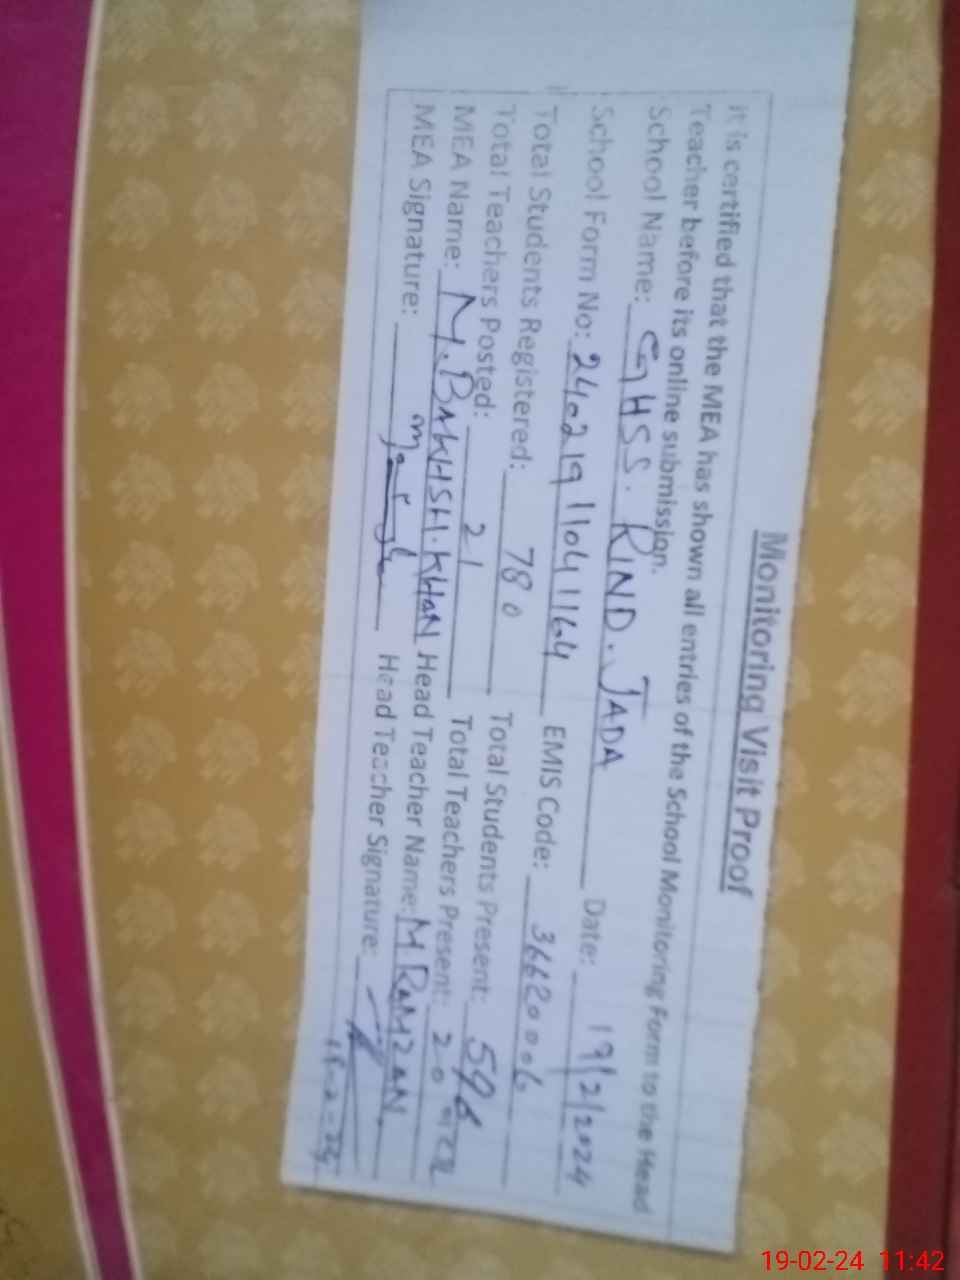 Monitoring Visit Proof
It is certified that the MEA has shown all entries of the School Monitoring Form to the Head
Teacher before its online submission.
School Name: GHSS. RIND. JADA Date: 19/2/2024
School Form No: 24021911041164 EMIS Code: 36620006
Total Students Registered: 780 Total Students Present: 596
Total Teachers Posted: 21 Total Teachers Present: 20
MEA Name: M. BAKHSH. KHAN Head Teacher Name: M RAMZAN
MEA Signature: Head Teacher Signature:
19-02-24 11:42